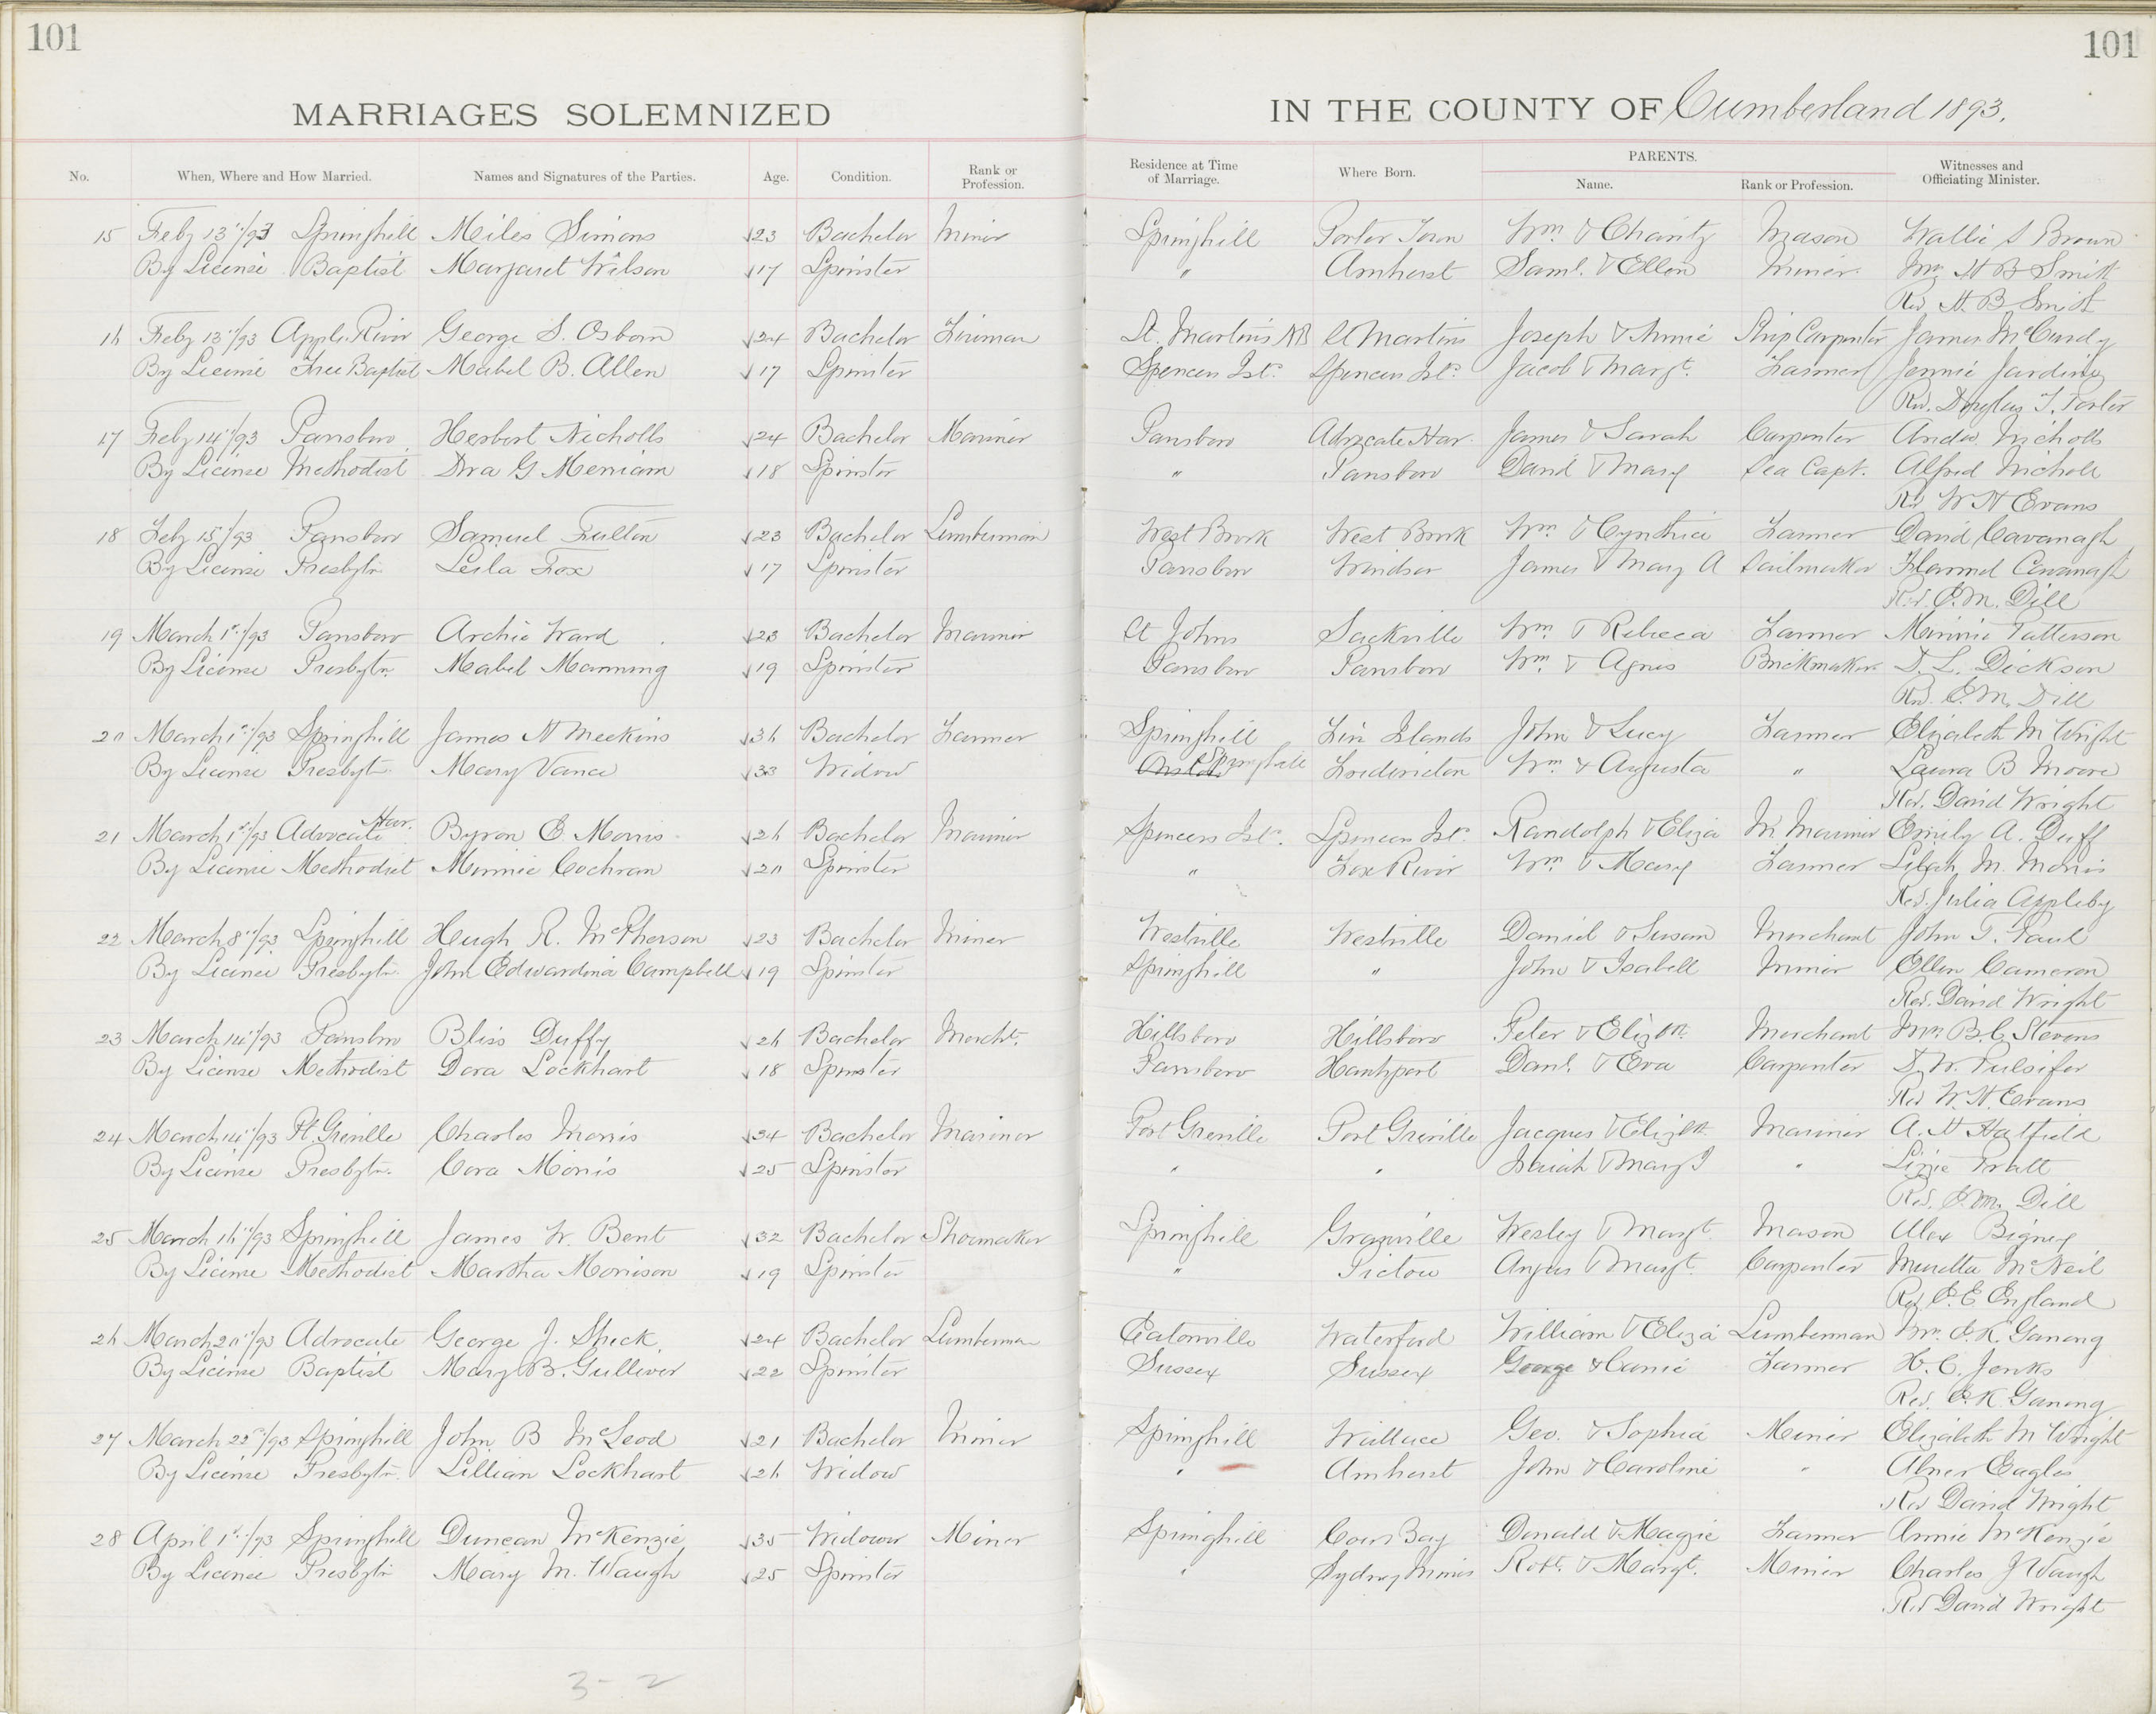 101
101
MARRIAGES SOLEMNIZED
IN THE COUNTY OF Cumberland 1893.
No. When, Where and How Married. Names and Signatures of the Parties. Age. Condition. Rank or Profession. Residence at Time of Marriage. Where Born. PARENTS. Name. Rank or Profession. Witnesses and Officiating Minister.
15 Feby 13th/93 Springhill Miles Simons 23 Bachelor Miner Springhill Porter Town Wm & Charity Mason Wallie S Brown
By License Baptist Margaret Wilson 17 Spinster " Amherst Saml. & Ellen Miner Mrs H B Smith
Rev H. B Smith
16 Feby 13th/93 Apple River George S. Osborn 24 Bachelor Lineman St. Martins NB St Martins Joseph & Annie Ship Carpenter James McCurdy
By License Free Baptist Mabel B. Allen 17 Spinster Spencers Isl. Spencers Isl. Jacob & Margt. Farmer Jennie Jardine
Rev. Douglas T. Porter
17 Feby 14th/93 Parrsboro Herbert Nicholls 24 Bachelor Mariner Parrsboro Advocate Har. James & Sarah Carpenter Andw. Nicholls
By License Methodist G Merriam 18 Spinster " Parrsboro David & Mary Sea Capt. Alfred Nicholl
Rev W H Evans
18 Feby 15th/93 Parrsboro Samuel Fulton 23 Bachelor Lumberman West Brook West Brook Wm & Cynthia Farmer David Cavanagh
By License Presbytn Leila Fox 17 Spinster Parrsboro Windsor James & Mary A Sailmaker Cavanagh
Rev. E. M. Dill
19 March 1st/93 Parrsboro Archie Ward 23 Bachelor Mariner St Johns Sackville Wm & Rebecca Farmer Minnie Patterson
By License Presbytn. Mabel Manning 19 Spinster Parrsboro Parrsboro Wm. & Agnes Brickmaker D. L. Dickson
Rev. E. M. Dill
20 March 1st/93 Springhill James H Meekins 36 Bachelor Farmer Springhill Five Islands John & Lucy Farmer Elizabeth M Wright
By License Presbytn. Mary Vance 33 Widow Onslow Springhill Londonderry Wm & Augusta " Laura B Moore
Rev. David Wright
21 March 1st/93 Advocate Har. Byron E. Morris 26 Bachelor Mariner Spencers Isl. Spencers Isl. Randolph & Eliza M Mariner Emily A. Duff
By License Methodist Minnie Cochran 20 Spinster " Fox River Wm & Mary Farmer Lilah M. Morris
Rev. Julia Appleby
22 March 8th/93 Springhill Hugh R. McPherson 23 Bachelor Miner Westville Westville Daniel & Susan Merchant John T. Paul
By License Presbytn. John Edwardina Campbell 19 Spinster Springhill " John & Isabell Miner Ellen Cameron
Rev. David Wright
23 March 14th/93 Parrsboro Bliss Duffy 26 Bachelor Mercht. Hillsboro Hillsboro Peter & Elizth. Merchant Mrs B. C Stevens
By License Methodist Dora Lockhart 18 Spinster Parrsboro Hantsport Danl. & Eva Carpenter D. W. Pulsifer
Rev W. H. Evans
24 March 14th/93 Pt. Greville Charles Morris 34 Bachelor Mariner Port Greville Port Greville Jacques & Elizth. Mariner A. H Hatfield
By License Presbytn. Cora Morris 25 Spinster " " Isaiah & Mary J " Lizzie Pratt
Rev. E. M. Dill
25 March 16th/93 Springhill James W. Bent 32 Bachelor Shoemaker Springhill Granville Wesley & Margt. Mason Alex Bigney
By License Methodist Martha Morrison 19 Spinster " Pictou Angus & Margt. Carpenter McNeil
Rev. E. E England
26 March 20th/93 Advocate George J. Speck 24 Bachelor Lumberman Eatonville Waterford William & Eliza Lumberman Mrs. E. K. Ganong
By License Baptist Mary B. Gulliver 22 Spinster Sussex Sussex George & Annie Farmer H. C. Jenks
Rev. E. K Ganong
27 March 22nd/93 Springhill John B McLeod 21 Bachelor Miner Springhill Wallace Geo. & Sophia Miner Elizabeth M Wright
By License Presbytn. Lillian Lockhart 26 Widow " Amherst John & Caroline " Abner Eagles
Rev David Wright
28 April 1st/93 Springhill Duncan McKenzie 35 Widower Miner Springhill Cow Bay Donald & Maggie Farmer Annie McKenzie
By License Presbytn Mary M. Waugh 25 Spinster " Sydney Mines Robt. & Margt. Miner Charles J Waugh
Rev David Wright
3-2